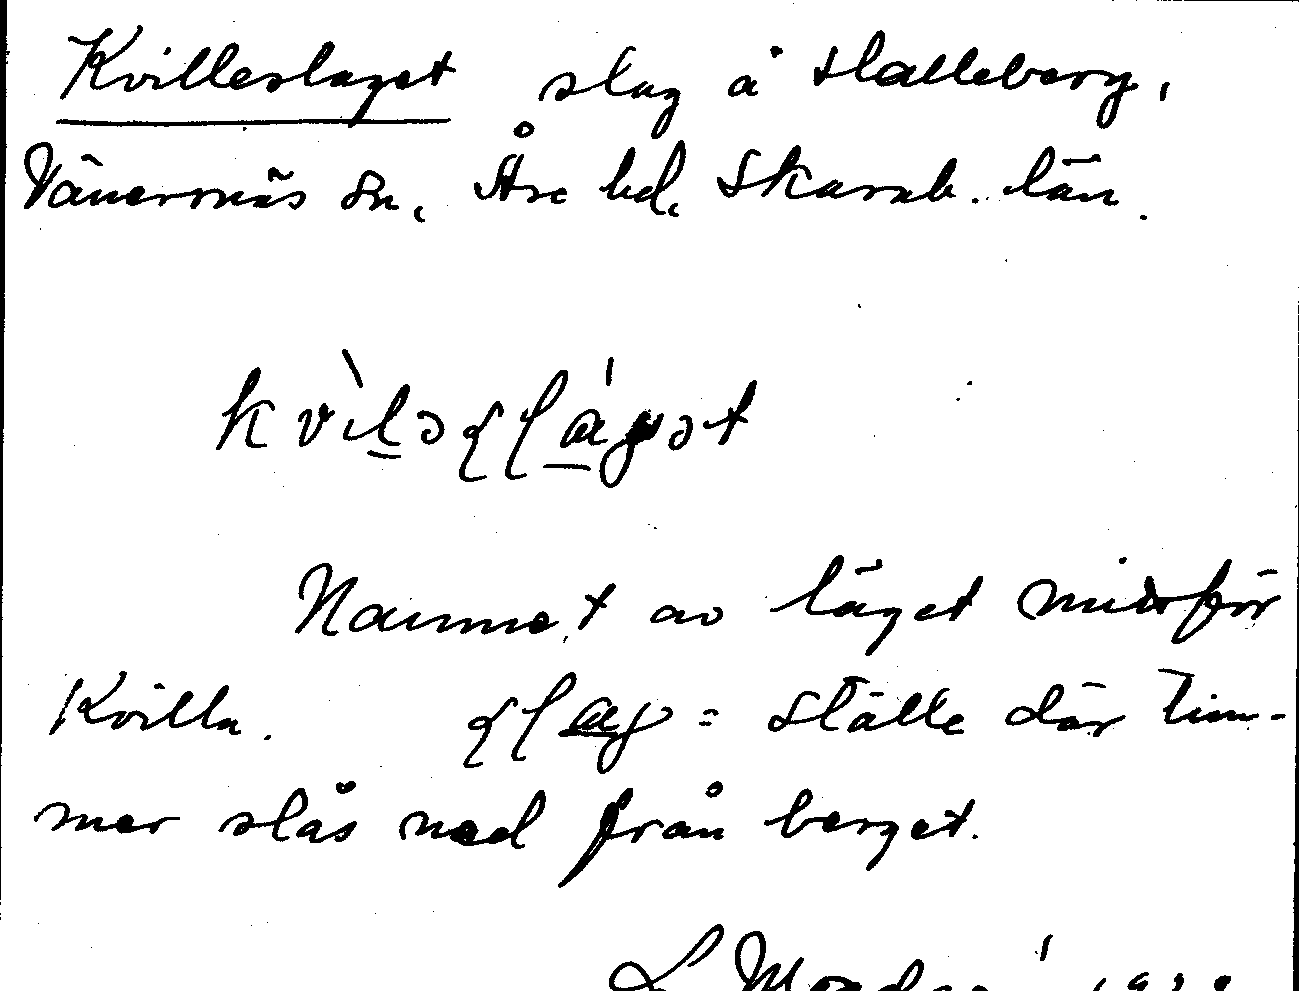 Kvilleslaget slag å Halleberg,
Vänersnäs sn, Åse hd, Skarab. län.
Namnet av läget nedanför
Kvilla. = ställe där tim-
mer slås ned från berget.